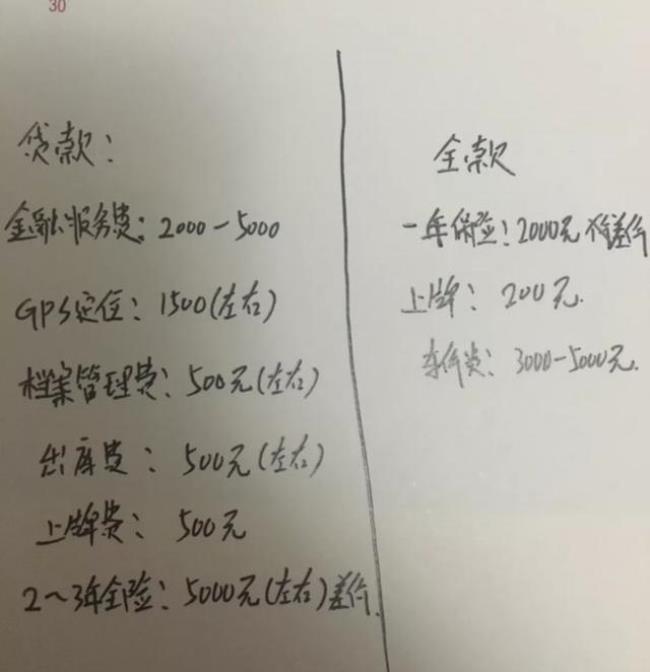 30
贷款：
金融服务费：2000-5000
GPS定位：1500(左右)
档案管理费：500元(左右)
出库费：500元(左右)
上牌费：500元
2~3年全险：5000元(左右)差价.
全款
一年保险：2000元 差价
上牌：200元.
车价费：3000-5000元.